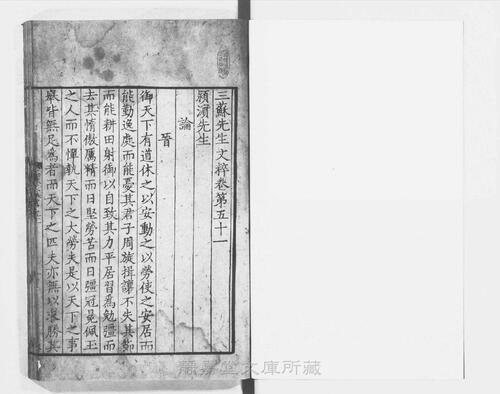 三蘇先生文粹卷第五十一
潁濱先生
論
晉
御天下有道休之以安動之以勞使之安居而
能勤逸處而能憂其君子周旋揖讓不失其節
而能耕田射御以自致其力平居習爲勉彊而
去其惰傲厲精而日堅勞苦而日彊冠冕佩玉
之人而不憚執天下之大勞夫是以天下之事
舉皆無足爲者而天下之匹夫亦無以求勝其
靜嘉堂文庫所藏